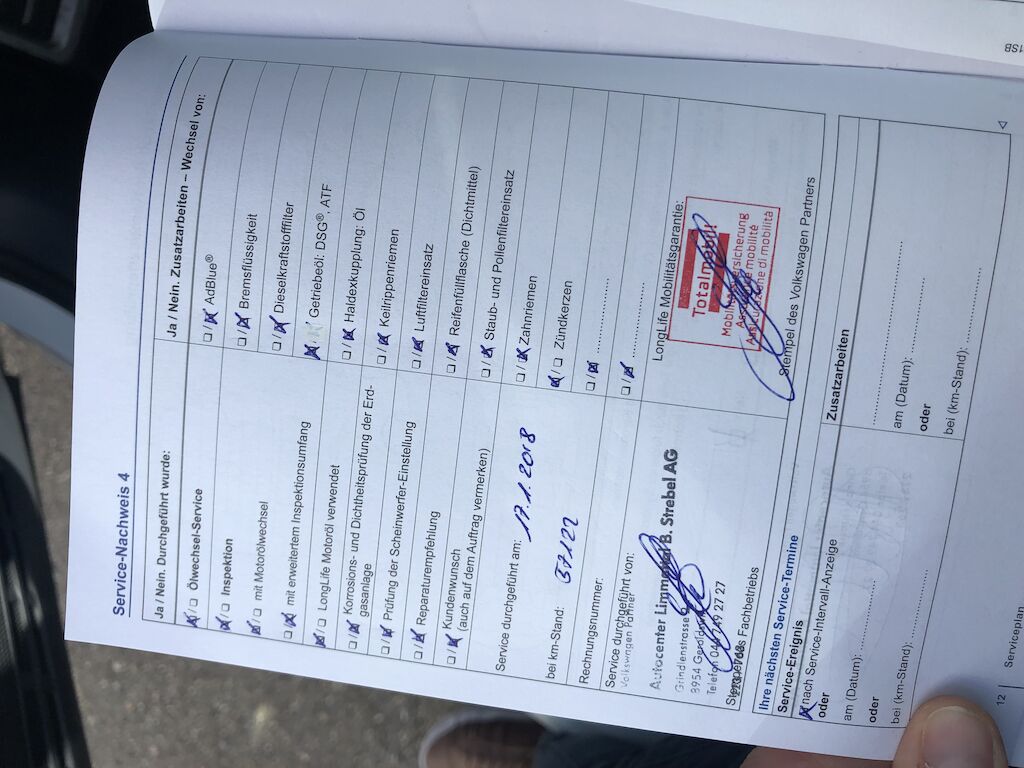 Service-Nachweis 4
Ja / Nein. Durchgeführt wurde:
☒ / ☐ Ölwechsel-Service
☒ / ☐ Inspektion
☒ / ☐ mit Motorölwechsel
☐ / ☒ mit erweitertem Inspektionsumfang
☒ / ☐ LongLife Motoröl verwendet
☐ / ☒ Korrosions- und Dichtheitsprüfung der Erd-
gasanlage
☐ / ☒ Prüfung der Scheinwerfer-Einstellung
☐ / ☒ Reparaturempfehlung
☐ / ☒ Kundenwunsch
(auch auf dem Auftrag vermerken)
Service durchgeführt am: 17.1.2018
bei km-Stand: 57122
Rechnungsnummer:
Service durchgeführt von:
Volkswagen Partner
Autocenter B. Strebel AG
Grindlenstrasse
8954
Telefon 27 27
des Fachbetriebs
Ja / Nein. Zusatzarbeiten – Wechsel von:
☐ / ☒ AdBlue®
☐ / ☒ Bremsflüssigkeit
☐ / ☒ Dieselkraftstofffilter
☒ / Getriebeöl: DSG®, ATF
☐ / ☒ Haldexkupplung: Öl
☐ / ☒ Keilrippenriemen
☐ / ☒ Luftfiltereinsatz
☐ / ☒ Reifenfüllflasche (Dichtmittel)
☐ / ☒ Staub- und Pollenfiltereinsatz
☐ / ☒ Zahnriemen
☒ / ☐ Zündkerzen
☐ / ☒ ....................
☐ / ☒ ....................
LongLife Mobilitätsgarantie:
Totalmobil!
Stempel des Volkswagen Partners
Ihre nächsten Service-Termine
Service-Ereignis
☒ nach Service-Intervall-Anzeige
oder
am (Datum): ....................
oder
bei (km-Stand): ....................
Zusatzarbeiten
........................................
am (Datum): ....................
oder
bei (km-Stand): ....................
12
Serviceplan